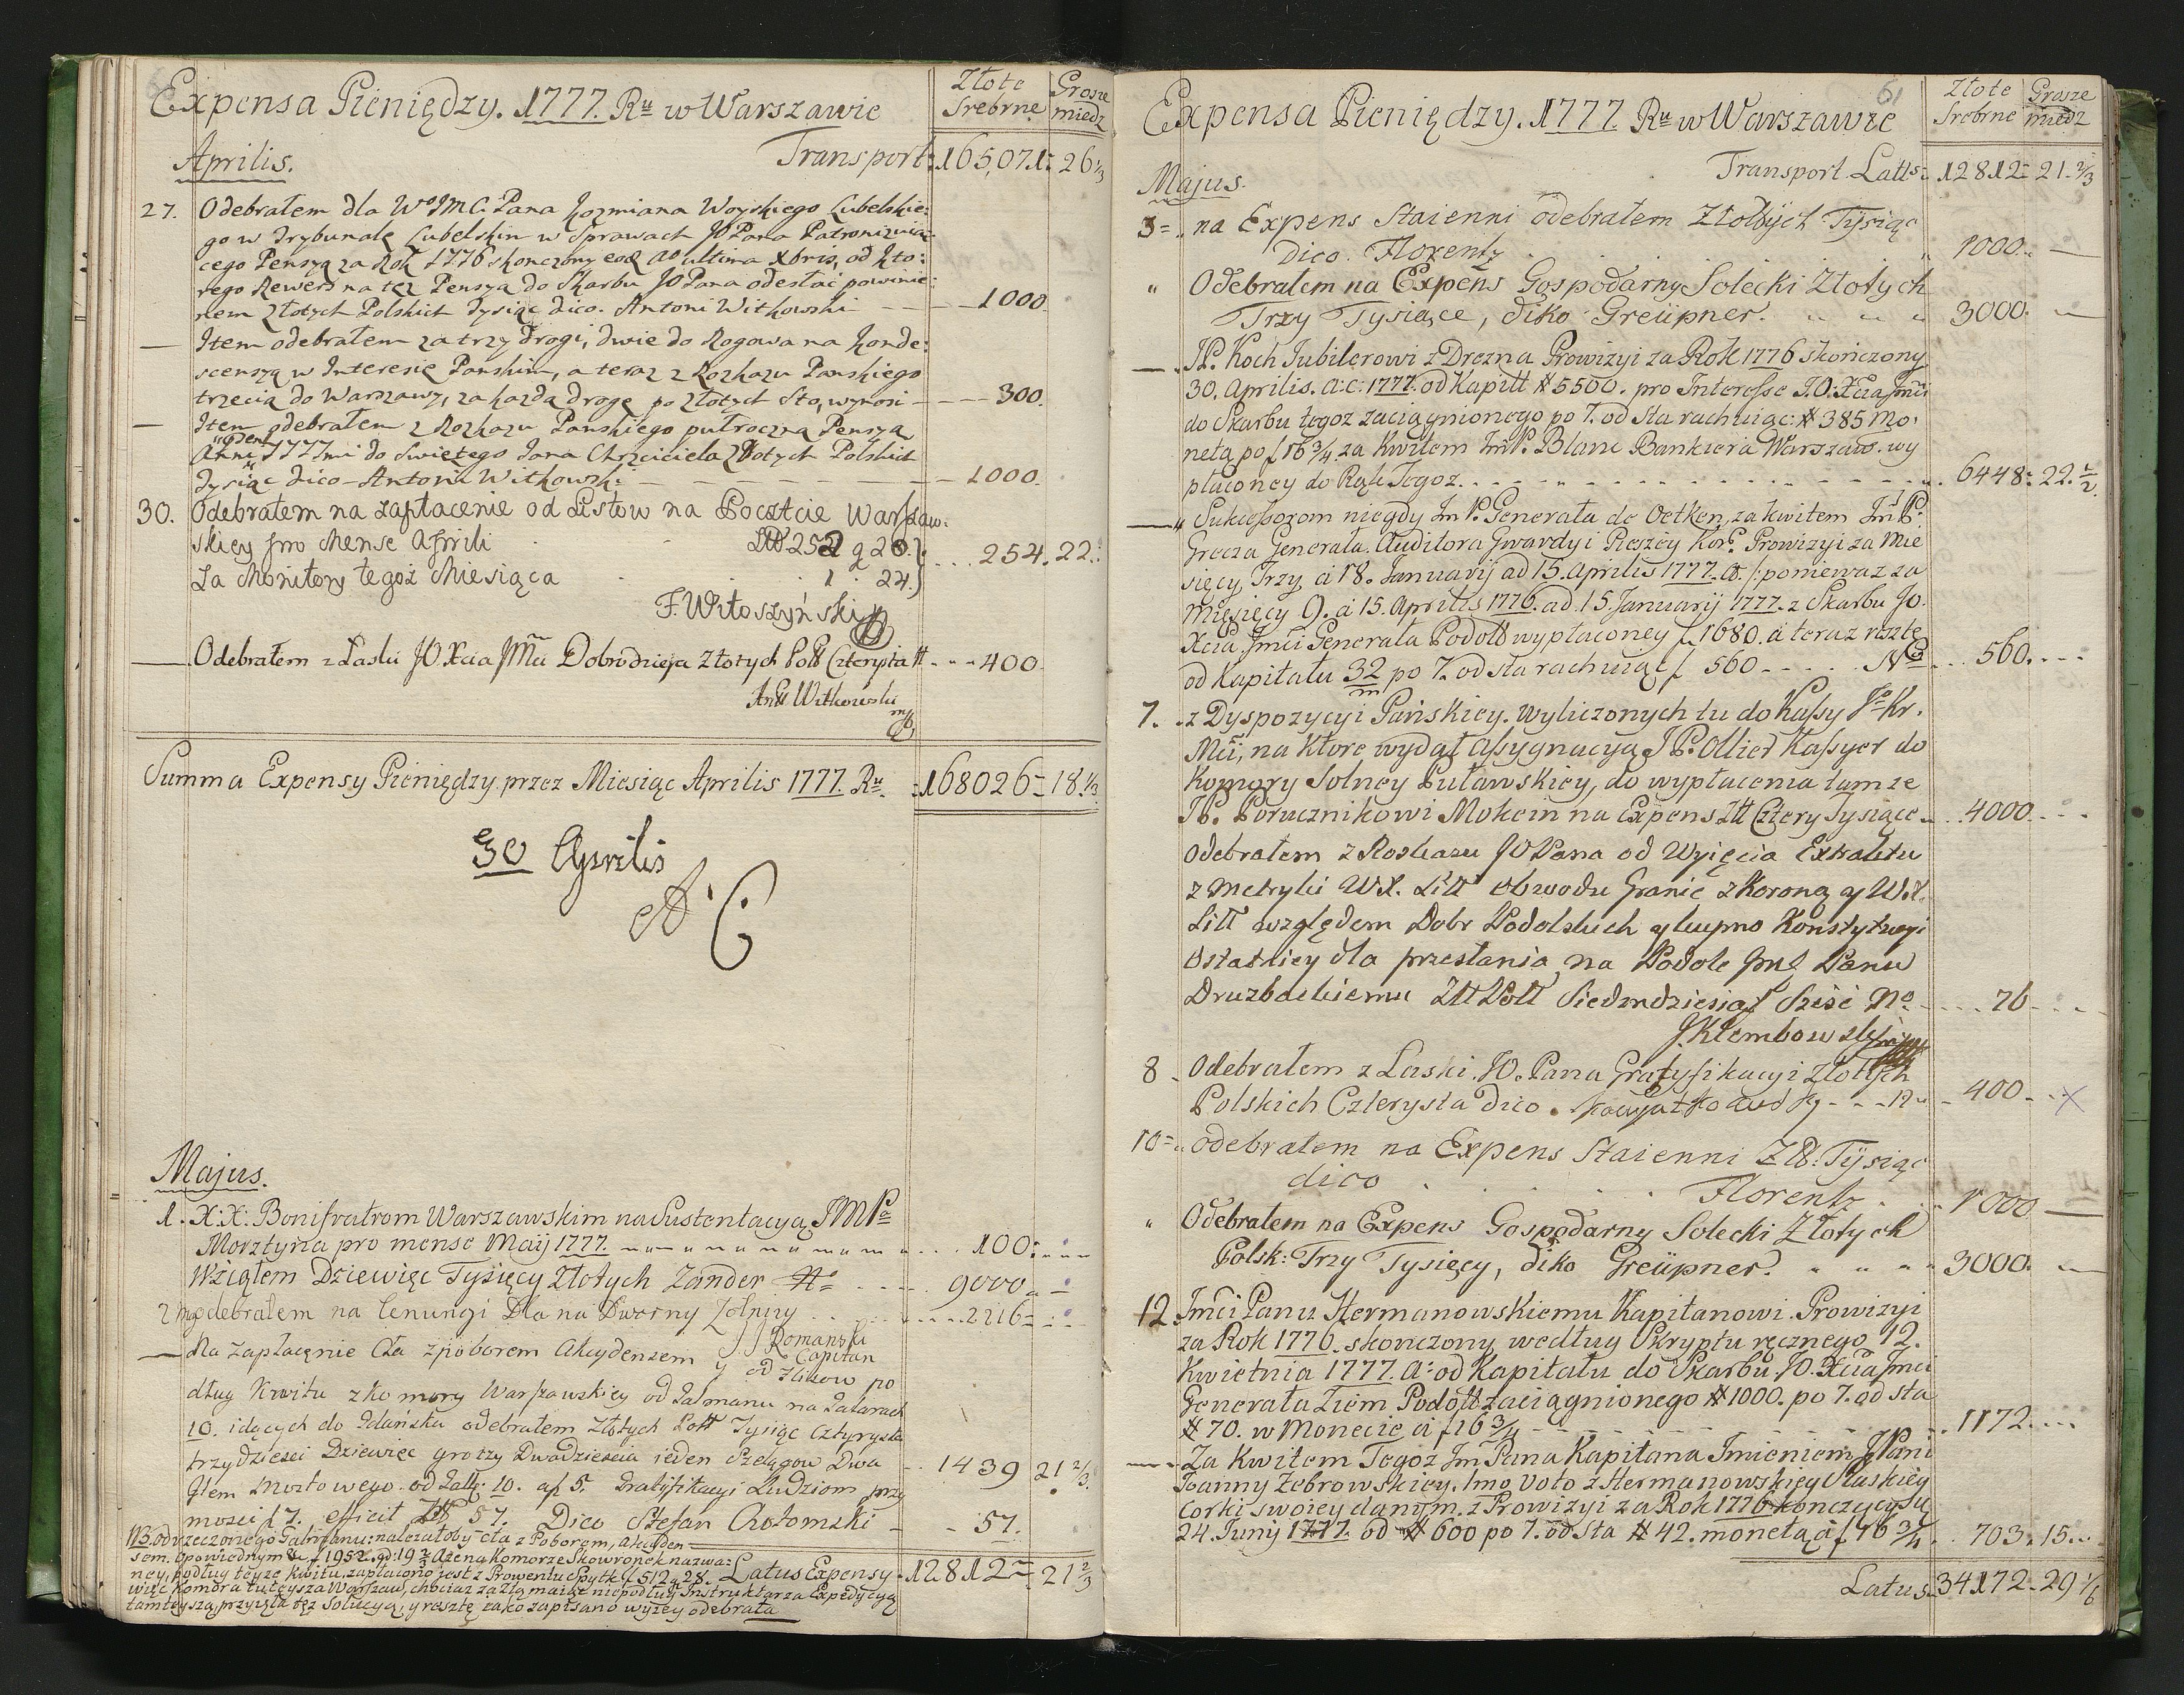 Expensa Pieniędzy. 1777. Ru w Warszawie
Złote Srebrne Grosze miedz
Aprilis. Transport: 165,071: 26 1/3
27. Odebrałem dla Wo JMC Pana Kozmiana Woyskiego Lubelskie:
go w Trybunale Lubelskim w Sprawach JO Pana Patronizuią:
cego Pensyą za Rok 1776 skonczony ultima Xbris, od kto:
rego Rewers na tęż Pensyą do Skarbu JO Pana odesłać powinie:
nem Złotych Polskich Tysiąc dico. Antoni Witkowski - - 1000.
— Item odebrałem za trzy drogi, dwie do Rogowa na Konde:
scensyą w Interesie Pańskim, a teraz z Rozkazu Pańskiego
trzecią do Warszawy, za każdą drogę po Złotych Sto, wynosi - - 300.
— Item odebrałem z Rozkazu Pańskiego pułroczną Pensyą
Anni 1777mi do Swiętego Jana Chrzciciela Złotych Polskich
Tysiąc dico - Antoni Witkowski - - - - 1000.
30. Odebrałem na zapłacenie od Listow na Poczcie Warszaw:
skiey pro Mense Aprili 252 g 28.
254. 22.
Za Monitory tegoż Miesiąca 1. 24.
F. Witoszyński
— Odebrałem z Łaski JO Xcia Jmci Dobrodzieja Złotych Poll Czterysta - - - 400.
Ant Witkowski
mp
Summa Expensy Pieniędzy przez Miesiąc Aprilis 1777. Ru. 168026 = 18 1/3
30 Aprilis
A C
Majus.
1. X: X: Bonifratrom Warszawskim na Sustentacyą JMPa
Morztyna pro mense Maij 1777. 100:
Wziąłem Dziewięć Tysięcy Złotych Zander No 9000
2 odebrałem na Lenungi Dla na Dworny Zołniry 2216
Romanski
Capitan
— Na Zapłacęnie Cła z poborem Akcydensem y od Zlikow po
dług Kwitu z Komory Warszawskiey od Zalmanu na Galarach
10. idących do Gdańska odebrałem Złotych Poll Tysiąc Cztyrysta
trzydziesci Dziewięc groszy Dwadziescia ieden Szelągow Dwa 1439 21 2/3.
Item Mostowego od 10. a f 5. Gratyfikacyi Ludziom przy
mosci f 7. efficit 57. Dico Stefan Chotomski - - 57.
NB. od rzeczonego Galmanu: należałoby cła z Poborem, Akcyden
sem. opowiednym f 1952. gd: 19 2/3 Aże na Komorze Skowronek nazwa:
ney, podług teyze kwitu, zapłacono jest z Prowentu Spytk f 512 g 28. Latus Expensy 12812 = 21 2/3
więc Komora tuteysza Warszaw, chociaż za złą maiąc niepodług Instruktarza Expedycyą
tamteyszą, przyięła tęż Solucyą, y resztę iako zapisano wyżey odebrała
61
Expensa Pieniędzy. 1777. Ru w Warszawie
Złote Srebrne Grosze miedz
Majus. Transport Latis: 12812 = 21. 2/3
3 = na Expens Staienni odebrałem Złotych Tysiąc
Dico. Florentz 1000. —
" Odebrałem na Expens Gospodarny Solecki Złotych
Trzy Tysiące, diko Greüpner. 3000. —
— JP. Koch Jubilerowi z Drezna Prowizyi za Rok 1776 skończony
30. Aprilis. a: c: 1777. od Kapitt # 5500. pro Interesse J.O: Xcia Jmci
do Skarbu tegoż zaciągnionego po 7. od sta rachuiąc: # 385 Mo:
netą po f 16 3/4. za Kwitem JmP. Blanc Bankiera Warszaw. wy
płaconey do Rąk Tegoż. 6448: 22. 1/2.
— " Sukcessorom niegdy JmP. Generała de Oetken, za kwitem JmP.
Grecza Generała. Auditora Gwardyi Pieszey Kor. Prowizyi za Mie
sięcy Trzy, à 18. Januarij ad 15. Aprilis 1777. a. /: poniewaz za
Miesięcy 9. à 15. Aprilis 1776. ad 15. Januarij 1777. z Skarbu JO.
Xcia Jmci Generała Podoll wypłaconey f 1680. a teraz resztę
od Kapitału 32/m po 7. od sta rachuiąc f 560 No 560.
7. z Dyspozycyi Pańskiey. Wyliczonych tu do Kassy Jo Kr.
Mci, na ktore wydał Assygnacyą JP. Ollier Kassyer do
Komory Solney Puławskiey, do wypłacenia tamże
JP. Porucznikowi Mokcin na Expens Zll Cztery Tysiące 4000.
Odebrałem z Roskazu JO Pana od Wyięcia Extraktu
z Metryki WX. Litt obwodu Granic z Koroną a W.X.
Litt względem Dobr Podolskich y kupno Konstytucyi
Ostatniey dla przesłania na Podole Jme Panu
Druzbackiemu Zll Poll Siedmdziesiąt Sześć No 76
J. Klembowski
8 Odebrałem z Łaski JO. Pana Gratyfikacyi Złotych
Polskich Czterysta dico. 400. X
10 = odebrałem na Expens Staienni Zll: Tysiąc
dico Florentz 1000 —
" Odebrałem na Expens Gospodarny Solecki Złotych
Polsk: Trzy Tysięcy, diko Greüpner. 3000. —
12. Jmci Panu Hermanowskiemu Kapitanowi. Prowizyi
za Rok 1776. skonczony według Skryptu ręcznego 12.
Kwietnia 1777. a: od Kapitału do Skarbu JO. Xcia Jmci
Generała Ziem Podoll zaciągnionego # 1000. po 7. od sta
# 70. w Monecie à f 16 3/4 1172.
— Za Kwitem Tegoż Jm Pana Kapitana Imieniem JPani
Joanny Żebrowskiey. Imo Voto z Hermanowskiey Ruskiey
Corki swoiey danym. z Prowizyi za Rok 1776 kończący się
24. Junij 1777. od # 600 po 7. od sta # 42. monetą à f 16 3/4 703. 15.
Latus 34172 - 29 1/6